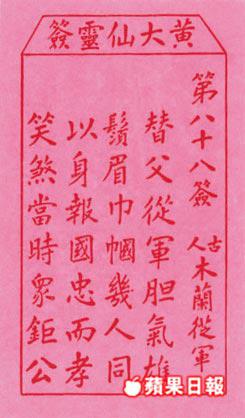 黃大仙靈簽
第八十八簽 古人 木蘭從軍
替父從軍胆氣雄
鬚眉巾幗幾人同
以身報國忠而孝
笑煞當時眾鉅公
蘋果日報